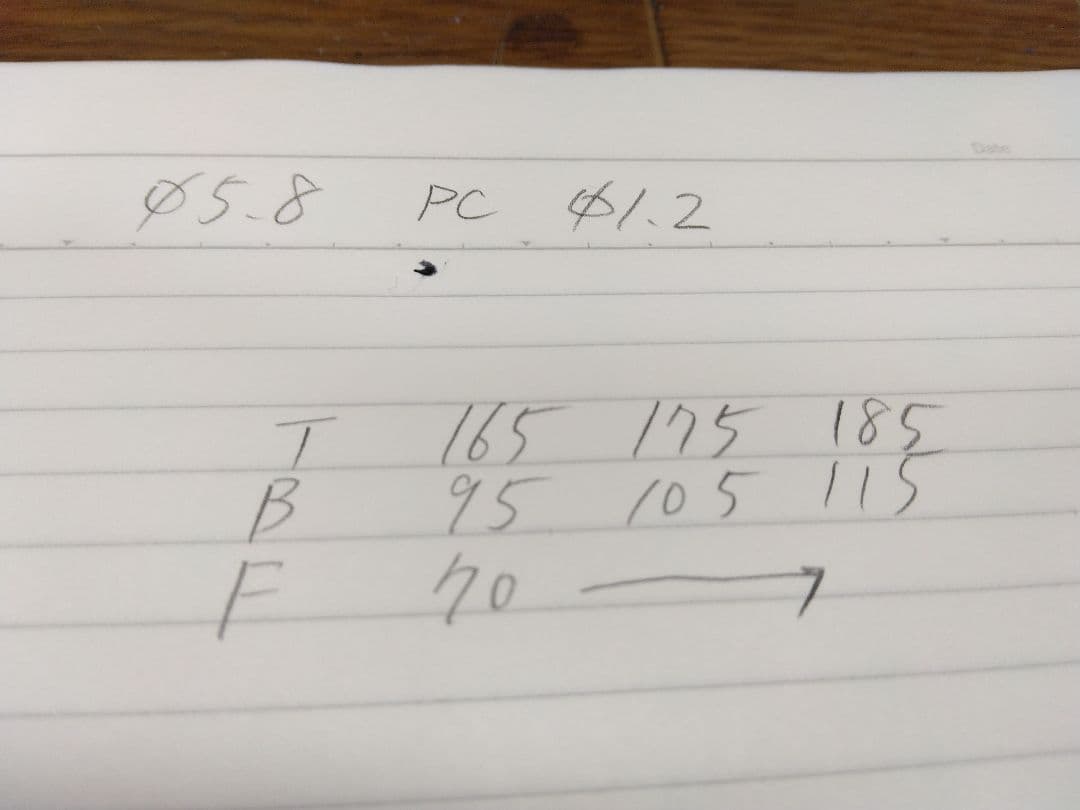 Date
φ5.8 PC φ1.2
T 165 175 185
B 95 105 115
F 70 →